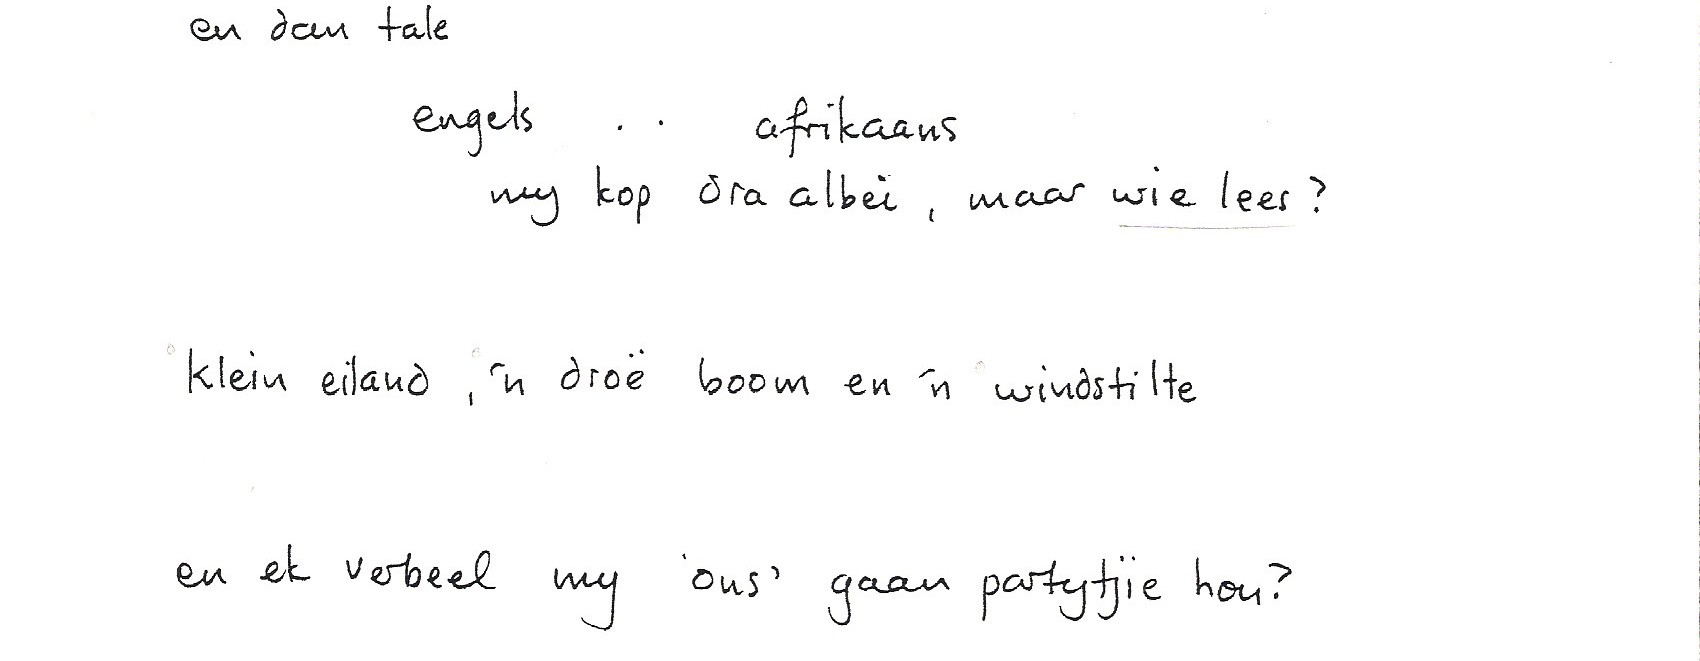 en dan tale
engels .. afrikaans
my kop dra albei, maar wie lees?
klein eiland, 'n droë boom en 'n windstilte
en ek verbeel my 'ons' gaan partytjie hou?